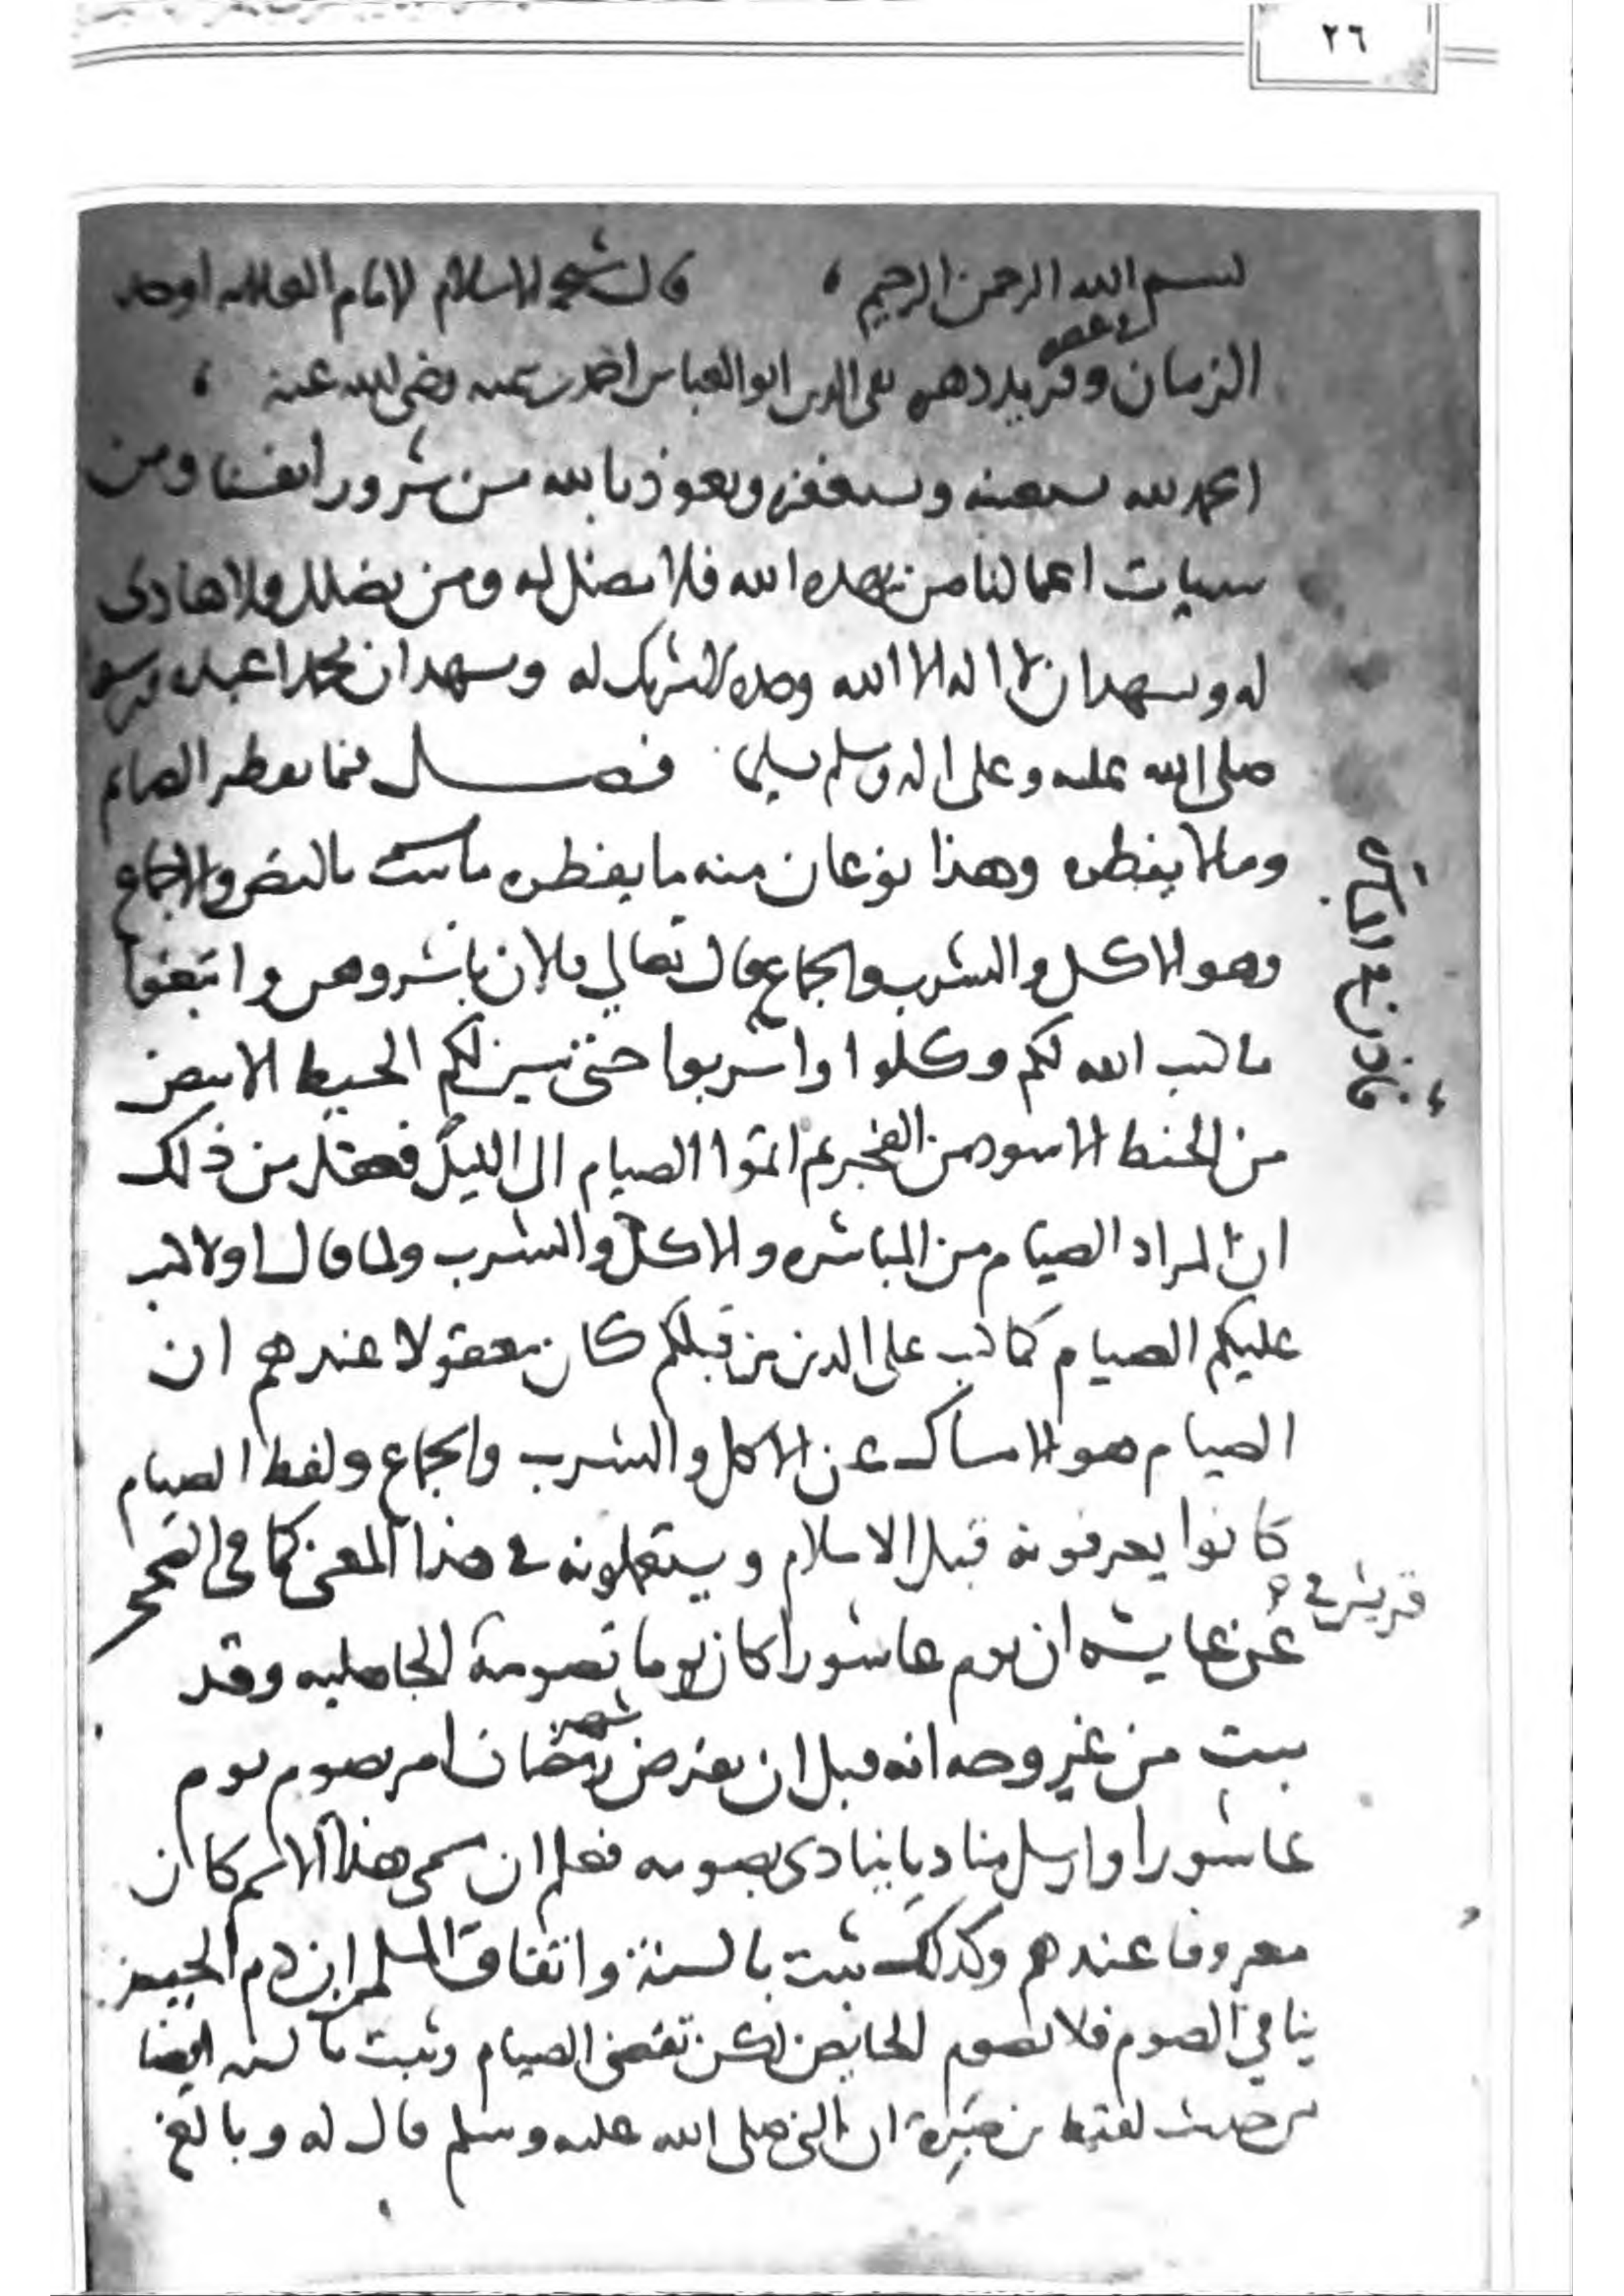 ٢٦
بسم الله الرحمن الرحيم ، قال شيخ الاسلام الامام العلامه اوحد
الزمان وفريد دهره تقي الدين ابو العباس احمد بن تيميه رضي الله عنه ،
الحمد لله نستعينه ونستغفره ونعوذ بالله من شرور انفسنا ومن
سيات اعمالنا من يهده الله فلا مضل له ومن يضلل فلا هادي
له ونشهد ان لا اله الا الله وحده لا شريك له ونشهد ان محمدا عبده ورسوله
صلى الله عليه وعلى اله وسلم تسليما فصل فيما يفطر الصايم
وما لا يفطره وهذا نوعان منه ما يفطره ما ثبت بالنص والاجماع
وهو الاكل والشرب والجماع قال تعالي فالان باشروهن وابتغوا
ما كتب الله لكم وكلوا واشربوا حتى يتبين لكم الخيط الابيض
من الخيط الاسود من الفجر ثم اتموا الصيام الى الليل فعقل من ذلك
ان المراد الصيام من المباشره والاكل والشرب ولما قال اولا كتب
عليكم الصيام كما كتب على الذين من قبلكم كان معقولا عندهم ان
الصيام هو الامساك عن الاكل والشرب والجماع ولفظ الصيام
كانوا يعرفونه قبل الاسلام ويستعملونه في هذا المعنى كما في الصحيح
عن عايشه ان يوم عاشورا كان يوما تصومه الجاهليه وقد
قريش في
ثبت من غير وجه انه قبل ان يفرض شهر رمضان امر بصوم يوم
عاشورا وارسل مناديا ينادي بصومه فعلم ان مسمى هذا الاسم كان
معروفا عندهم وكذلك ثبت بالسنة واتفاق المسلمين ان دم الحيض
ينافي الصوم فلا تصوم الحايض لكن تقضي الصيام وثبت بالسنه ايضا
من حديث لقيط بن صبرة ان النبي صلى الله عليه وسلم قال له وبالغ